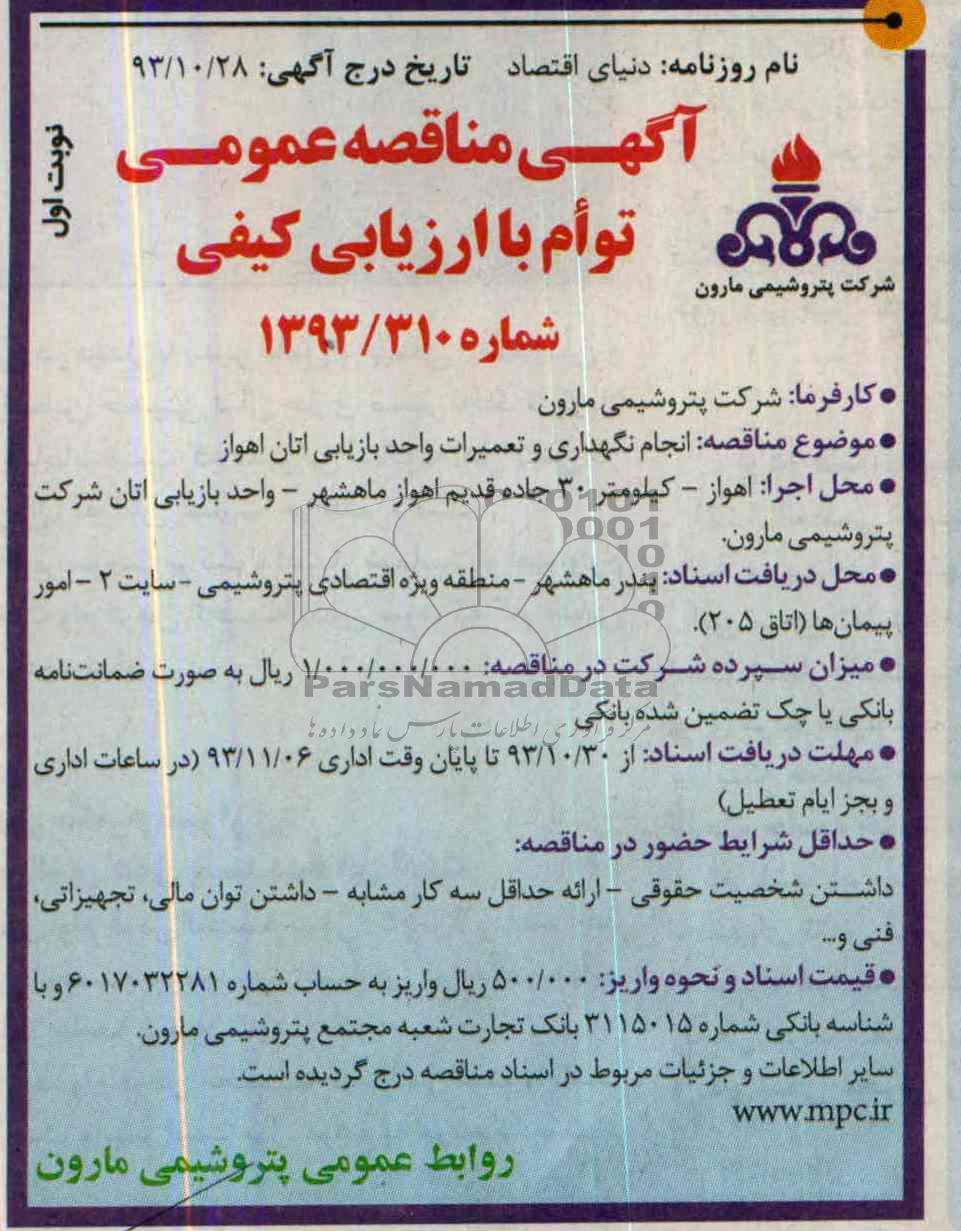 نام روزنامه: دنیای اقتصاد تاریخ درج آگهی: ۹۳/۱۰/۲۸
نوبت اول
آگهـی مناقصه عمومـی
توأم با ارزیابی کیفی
شرکت پتروشیمی مارون
شماره ۱۳۹۳/۳۱۰
● کارفرما: شرکت پتروشیمی مارون
● موضوع مناقصه: انجام نگهداری و تعمیرات واحد بازیابی اتان اهواز
● محل اجرا: اهواز – کیلومتر ۳۰ جاده قدیم اهواز ماهشهر – واحد بازیابی اتان شرکت
پتروشیمی مارون.
● محل دریافت اسناد: بندر ماهشهر – منطقه ویژه اقتصادی پتروشیمی – سایت ۲ – امور
پیمان‌ها (اتاق ۲۰۵).
● میزان سـپرده شـرکت در مناقصه: ۱/۰۰۰/۰۰۰/۰۰۰ ریال به صورت ضمانت‌نامه
ParsNamadData
بانکی یا چک تضمین شده بانکی
مرکز فرآوری اطلاعات پارس نماد داده ها
● مهلت دریافت اسناد: از ۹۳/۱۰/۳۰ تا پایان وقت اداری ۹۳/۱۱/۰۶ (در ساعات اداری
و بجز ایام تعطیل)
● حداقل شرایط حضور در مناقصه:
داشـتن شخصیت حقوقی – ارائه حداقل سه کار مشابه – داشتن توان مالی، تجهیزاتی،
فنی و...
● قیمت اسناد و نحوه واریز: ۵۰۰/۰۰۰ ریال واریز به حساب شماره ۶۰۱۷۰۳۲۲۸۱ و با
شناسه بانکی شماره ۳۱۱۵۰۱۵ بانک تجارت شعبه مجتمع پتروشیمی مارون.
سایر اطلاعات و جزئیات مربوط در اسناد مناقصه درج گردیده است.
www.mpc.ir
روابط عمومی پتروشیمی مارون